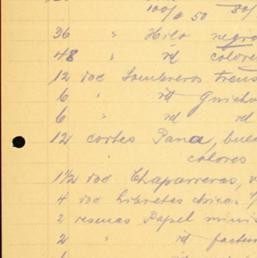 100/ # 50 80/
36 " Hilo negro
48 " id colores
12 doc Sombreros trens
6 " id
6 " id id
12 cortes Pana, bue
colores
1½ doc Chaparreras,
4 doc libretas chicas
2 resmas Papel minis
2 id factur
6